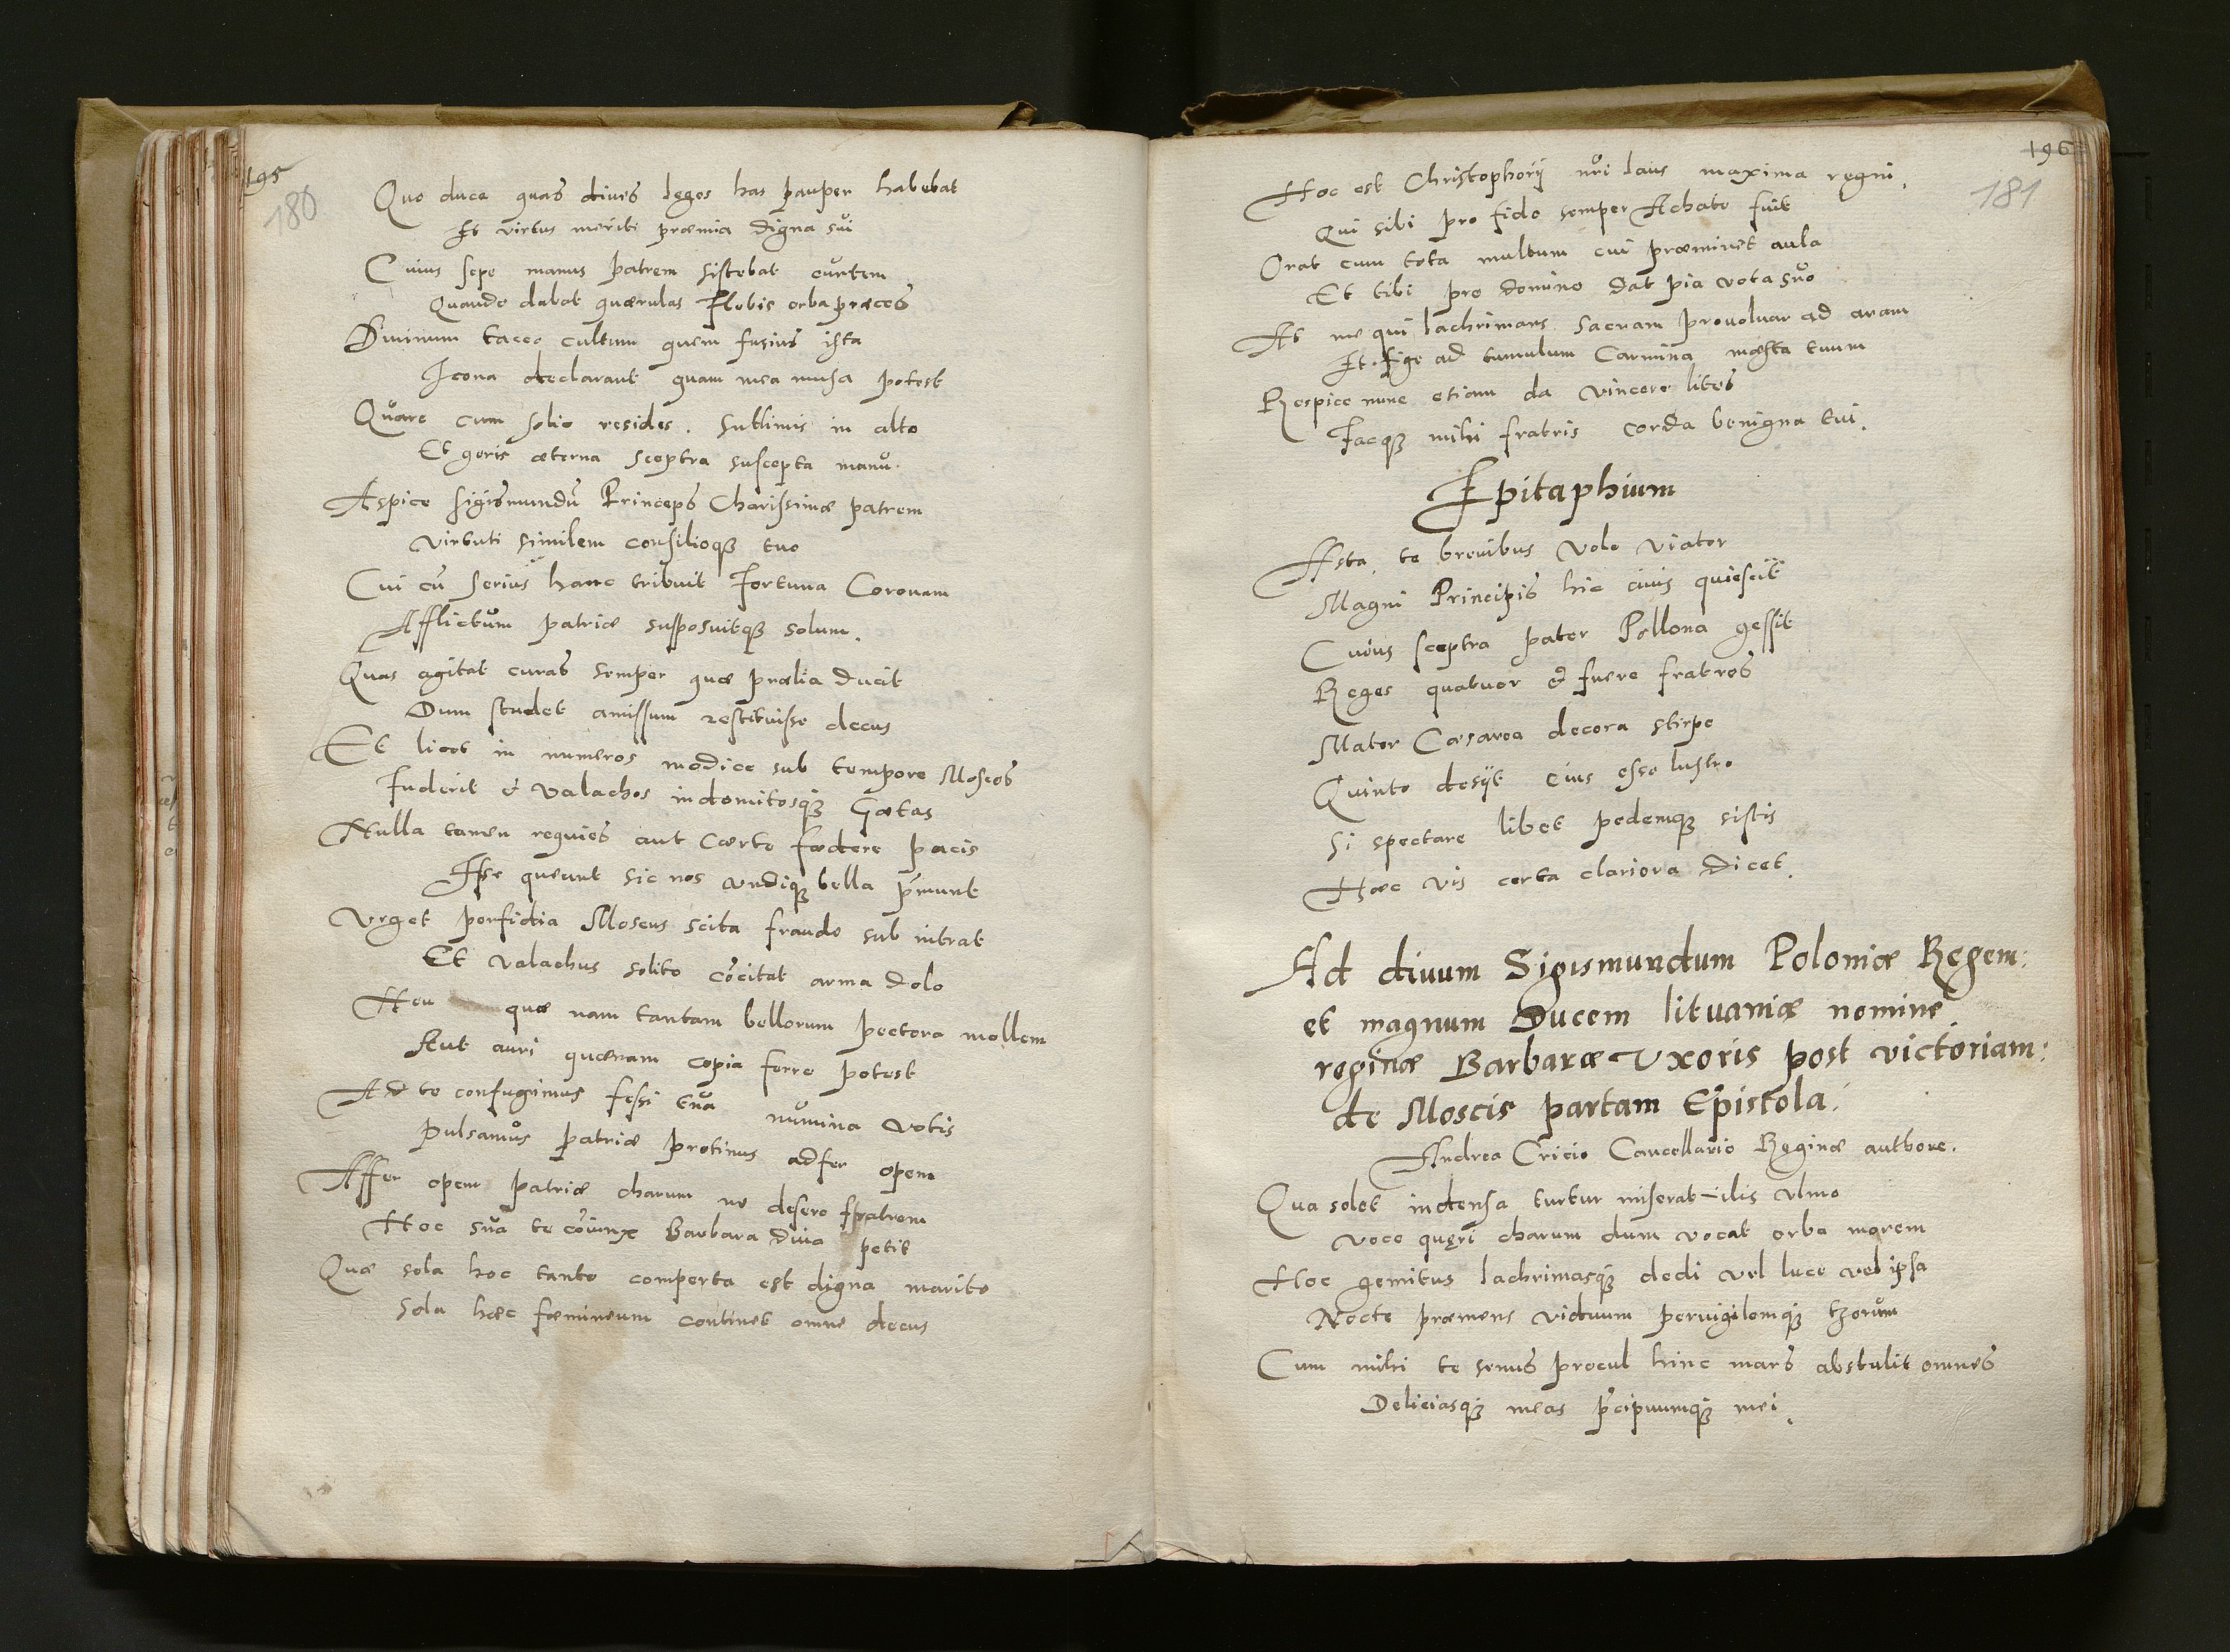 195
180
Quo duce quas diues leges has pauper habebat
Et virtus meriti præmia digna sui
Cuius sepe manus patrem sistebat euntem
Quando dabat quærulas Plebis orba præces
Diuinum taceo cultum quem fusius ista
Icona declarant quam mea musa potest
Quare cum solio resides. sublimis in alto
Et geris æterna sceptra suscepta manu.
Aspice sigismundũ Princeps Charissimæ patrem
virtuti similem consilioqꝫ tuo
Cui cũ serius hanc tribuit Fortuna Coronam
Afflictum patriæ supposuitqꝫ solum.
Quas agitat curas semper quæ prælia ducit
Dum studet amissum restituisse decus
Et licet in numeros modico sub tempore Moscos
Fuderit & Valachos indomitosqꝫ Gætas
Nulla tamen requies aut cærto fædere pacis
Esse queunt sic nos vndiqꝫ bella p̃munt
Vrget perfidia Moscus scita fraude sub intrat
Et valachus solito cõcitat arma dolo
Heu quæ nam tantam bellorum pectora mollem
Aut auri quænam copia ferre potest
Ad te confugimus fessi tua numina votis
Pulsamus patriæ protinus adfer opem
Affer opem patriæ charum ne desere fratrem
Hoc sua te cõiunx Barbara diua petit
Quæ sola hoc tanto comperta est digna marito
Sola hæc fæmineum continet omne decus
196
181
Hoc est Christophorij nr̃i laus maxima regni.
Qui sibi pro fido semper Achate fuit
Orat cum tota multum cui præminet aula
Et tibi pro domino dat pia vota suo
At me qui lachrimans sacram prouoluar ad aram
Et figo ad tumulum Carmina mæsta tuum
Respice nunc etiam da vincere lites
Facqꝫ mihi fratris corda benigna tui.
Epitaphium
Asta, te breuibus volo viator
Magni Principis hic cinis quiescit
Cuius sceptra pater Pollona gessit
Reges quatuor & fuere fratres
Mater Cæsarea decora stirpe
Quinto desijt eius esse lustro
Si spectare libet pedemqꝫ sistis
Hæc vis certa clariora dicet.
Ad diuum Sigismundum Poloniæ Regem:
et magnum Ducem lituaniæ nomine
reginæ Barbaræ Vxoris post victoriam:
de Moscis partam Epistola.
Andrea Cricio Cancellario Reginæ authore.
Qua solet indensa turtur miserabilis vlmo
voce quęri charum dum vocat orba marem
Hoc gemitus lachrimasqꝫ dedi vel luce vel ipsa
Nocte præmens viduum peruigilemqꝫ thorum
Cum mihi te senus procul hinc mars abstulit omnes
Deliciasqꝫ meas p̃cipuumqꝫ mei.